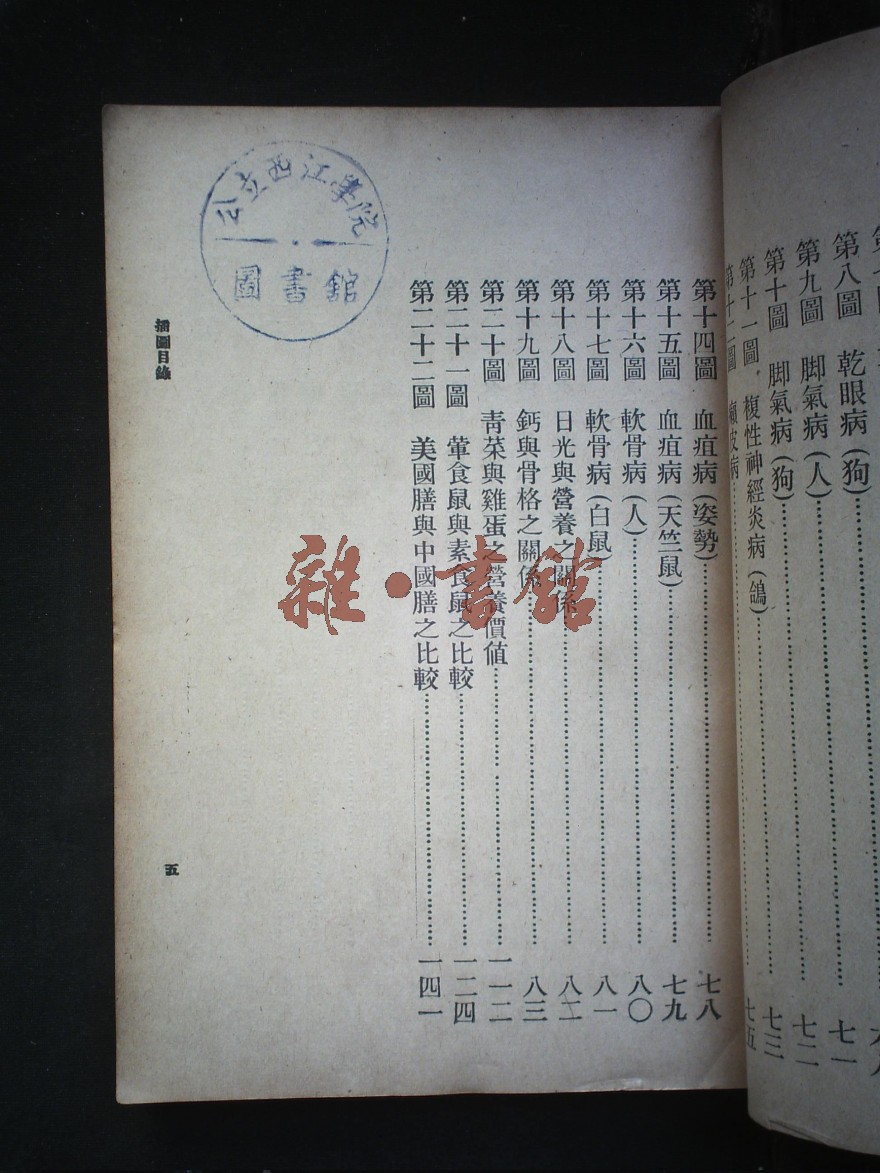 第八圖 乾眼病(狗)……七一
第九圖 脚氣病(人)……七二
第十圖 脚氣病(狗)……七三
第十一圖 複性神經炎病(鴿)……七五
第十二圖 癩皮病……
第十四圖 血疽病(姿勢)……七八
第十五圖 血疽病(天竺鼠)……七九
第十六圖 軟骨病(人)……八〇
第十七圖 軟骨病(白鼠)……八一
第十八圖 日光與營養之關係……八二
第十九圖 鈣與骨格之關係……八三
第二十圖 靑菜與雞蛋之營養價值……一一二
第二十一圖 葷食鼠與素食鼠之比較……一二四
第二十二圖 美國膳與中國膳之比較……一四一
插圖目錄
五
公立西江學院
圖書館
雜·書館